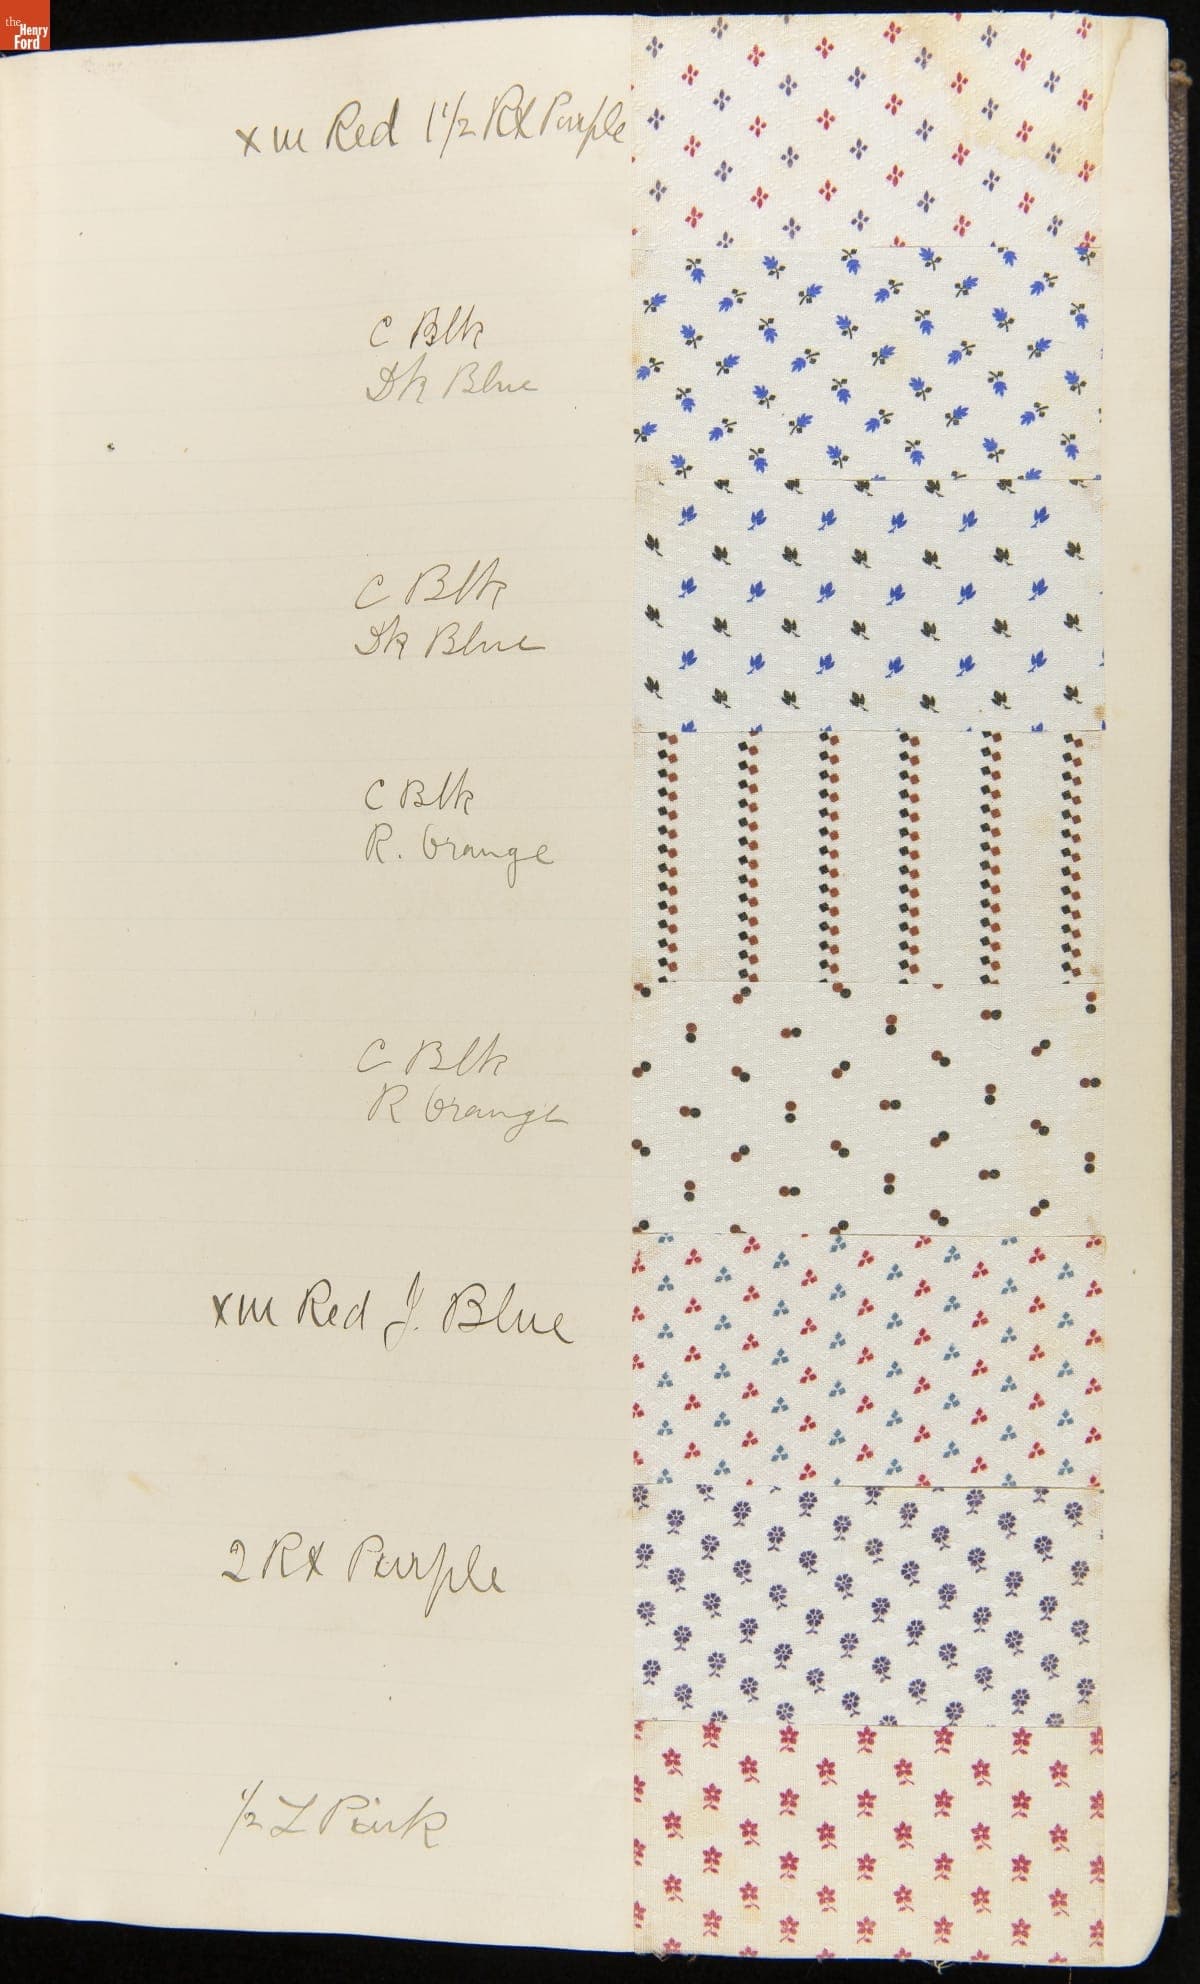 the
Henry
Ford
xm Red 1 1/2 RX Purple
C Blk
Dk Blue
C Blk
Dk Blue
C Blk
R. Orange
C Blk
R Orange
xm Red J. Blue
2 RX Purple
1/2 L Pink